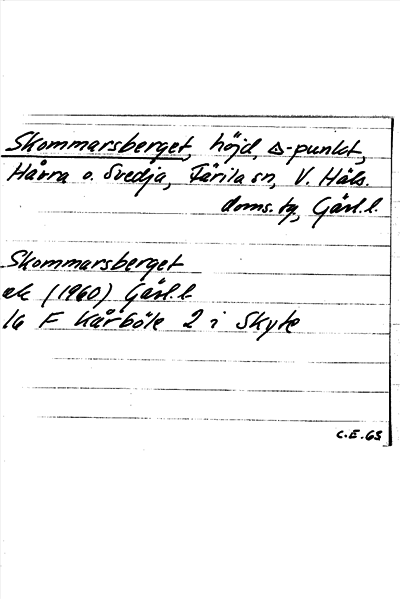 Skommarsberget, höjd, △-punkt,
Håvra o. Svedja, Färila sn, V. Häls.
doms. tg, Gävl. l.
Skommarsberget
ek (1960) Gävl. l.
16 F Kårböle 2 i Skyte
C.E. 65